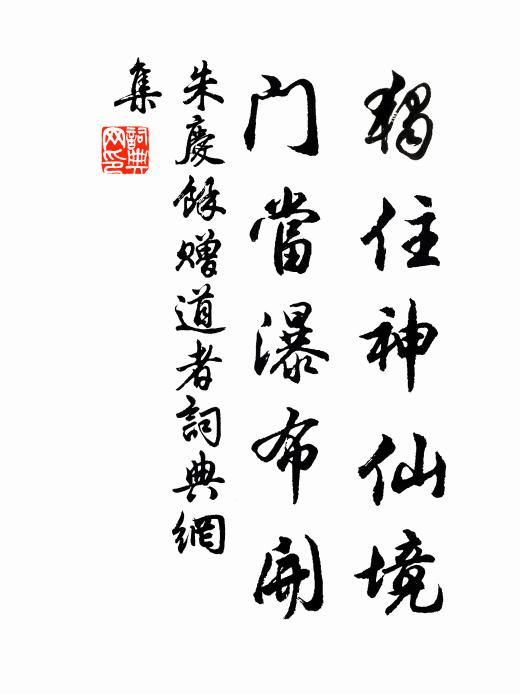 獨住神仙境
門當瀑布開
朱慶餘贈道者詞典網
集
詞典網印